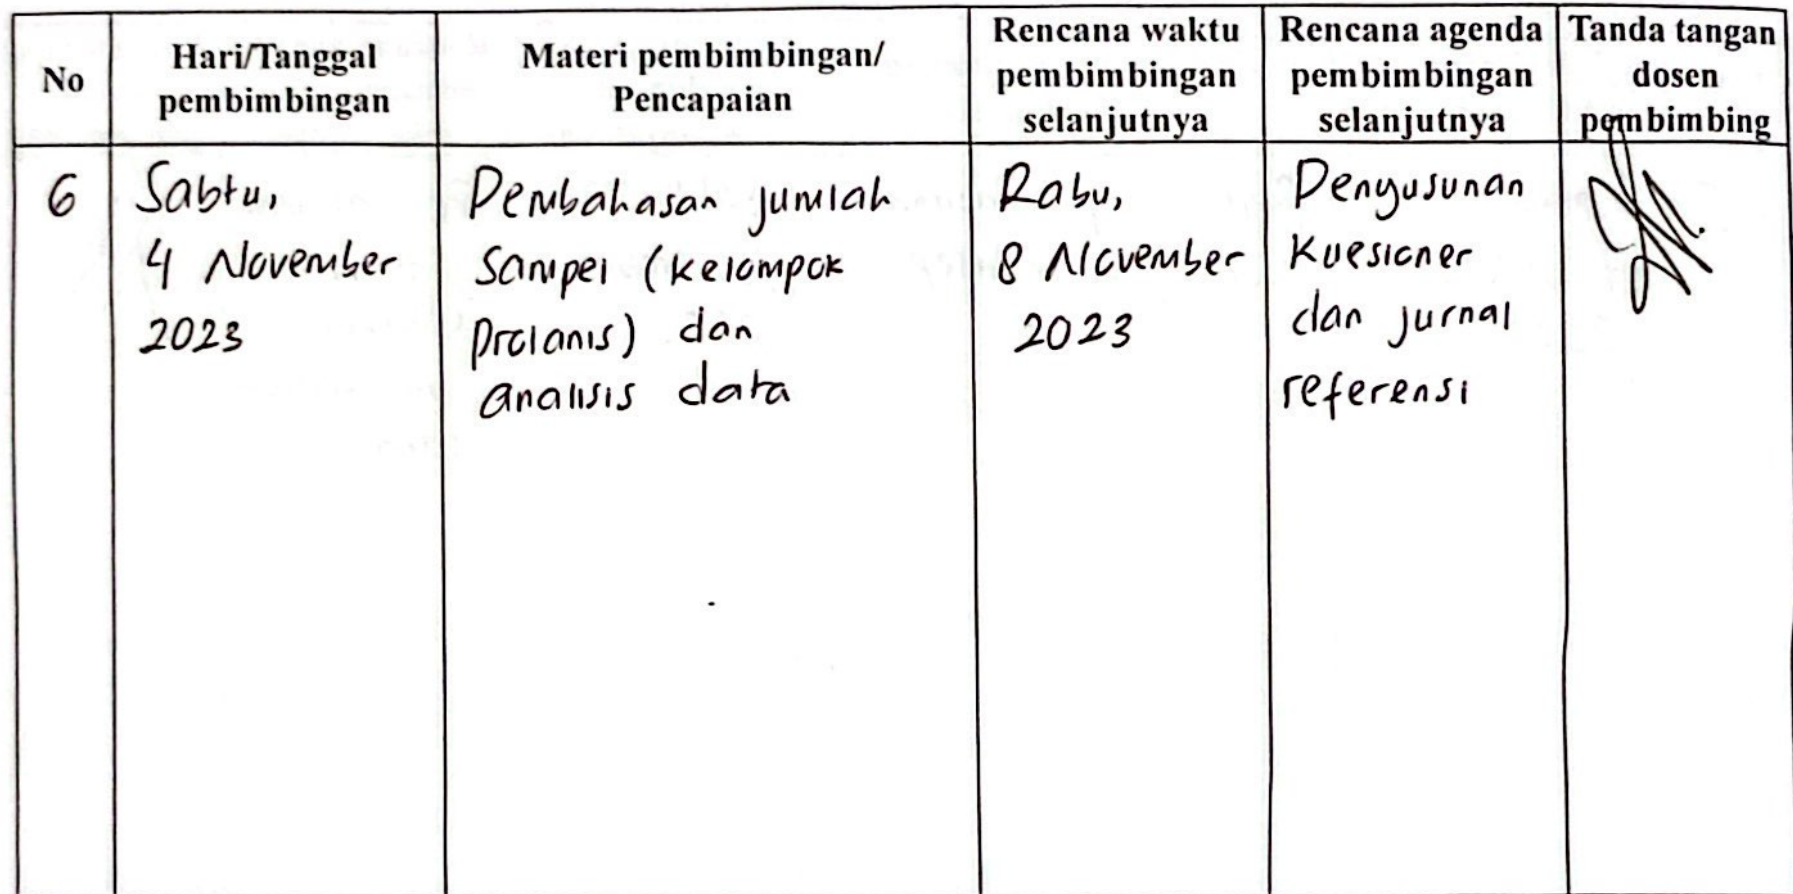 No
Hari/Tanggal
pembimbingan
Materi pembimbingan/
Pencapaian
Rencana waktu
pembimbingan
selanjutnya
Rencana agenda
pembimbingan
selanjutnya
Tanda tangan
dosen
pembimbing
6
Sabtu,
4 November
2023
Pembahasan jumlah
sampel (kelompok
prolanis) dan
analisis data
Rabu,
8 November
2023
Penyusunan
kuesioner
dan jurnal
referensi